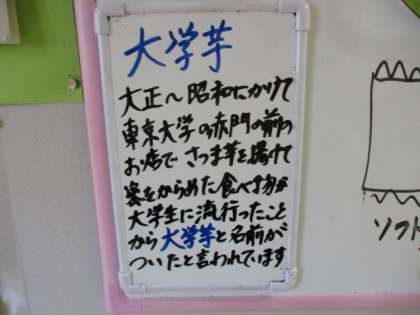 大学芋
大正～昭和にかけて
東京大学の赤門の前の
お店で さつま芋を揚げて
蜜をからめた食べ方が
大学生に流行ったこと
から大学芋と名前が
ついたと言われています
ソフト